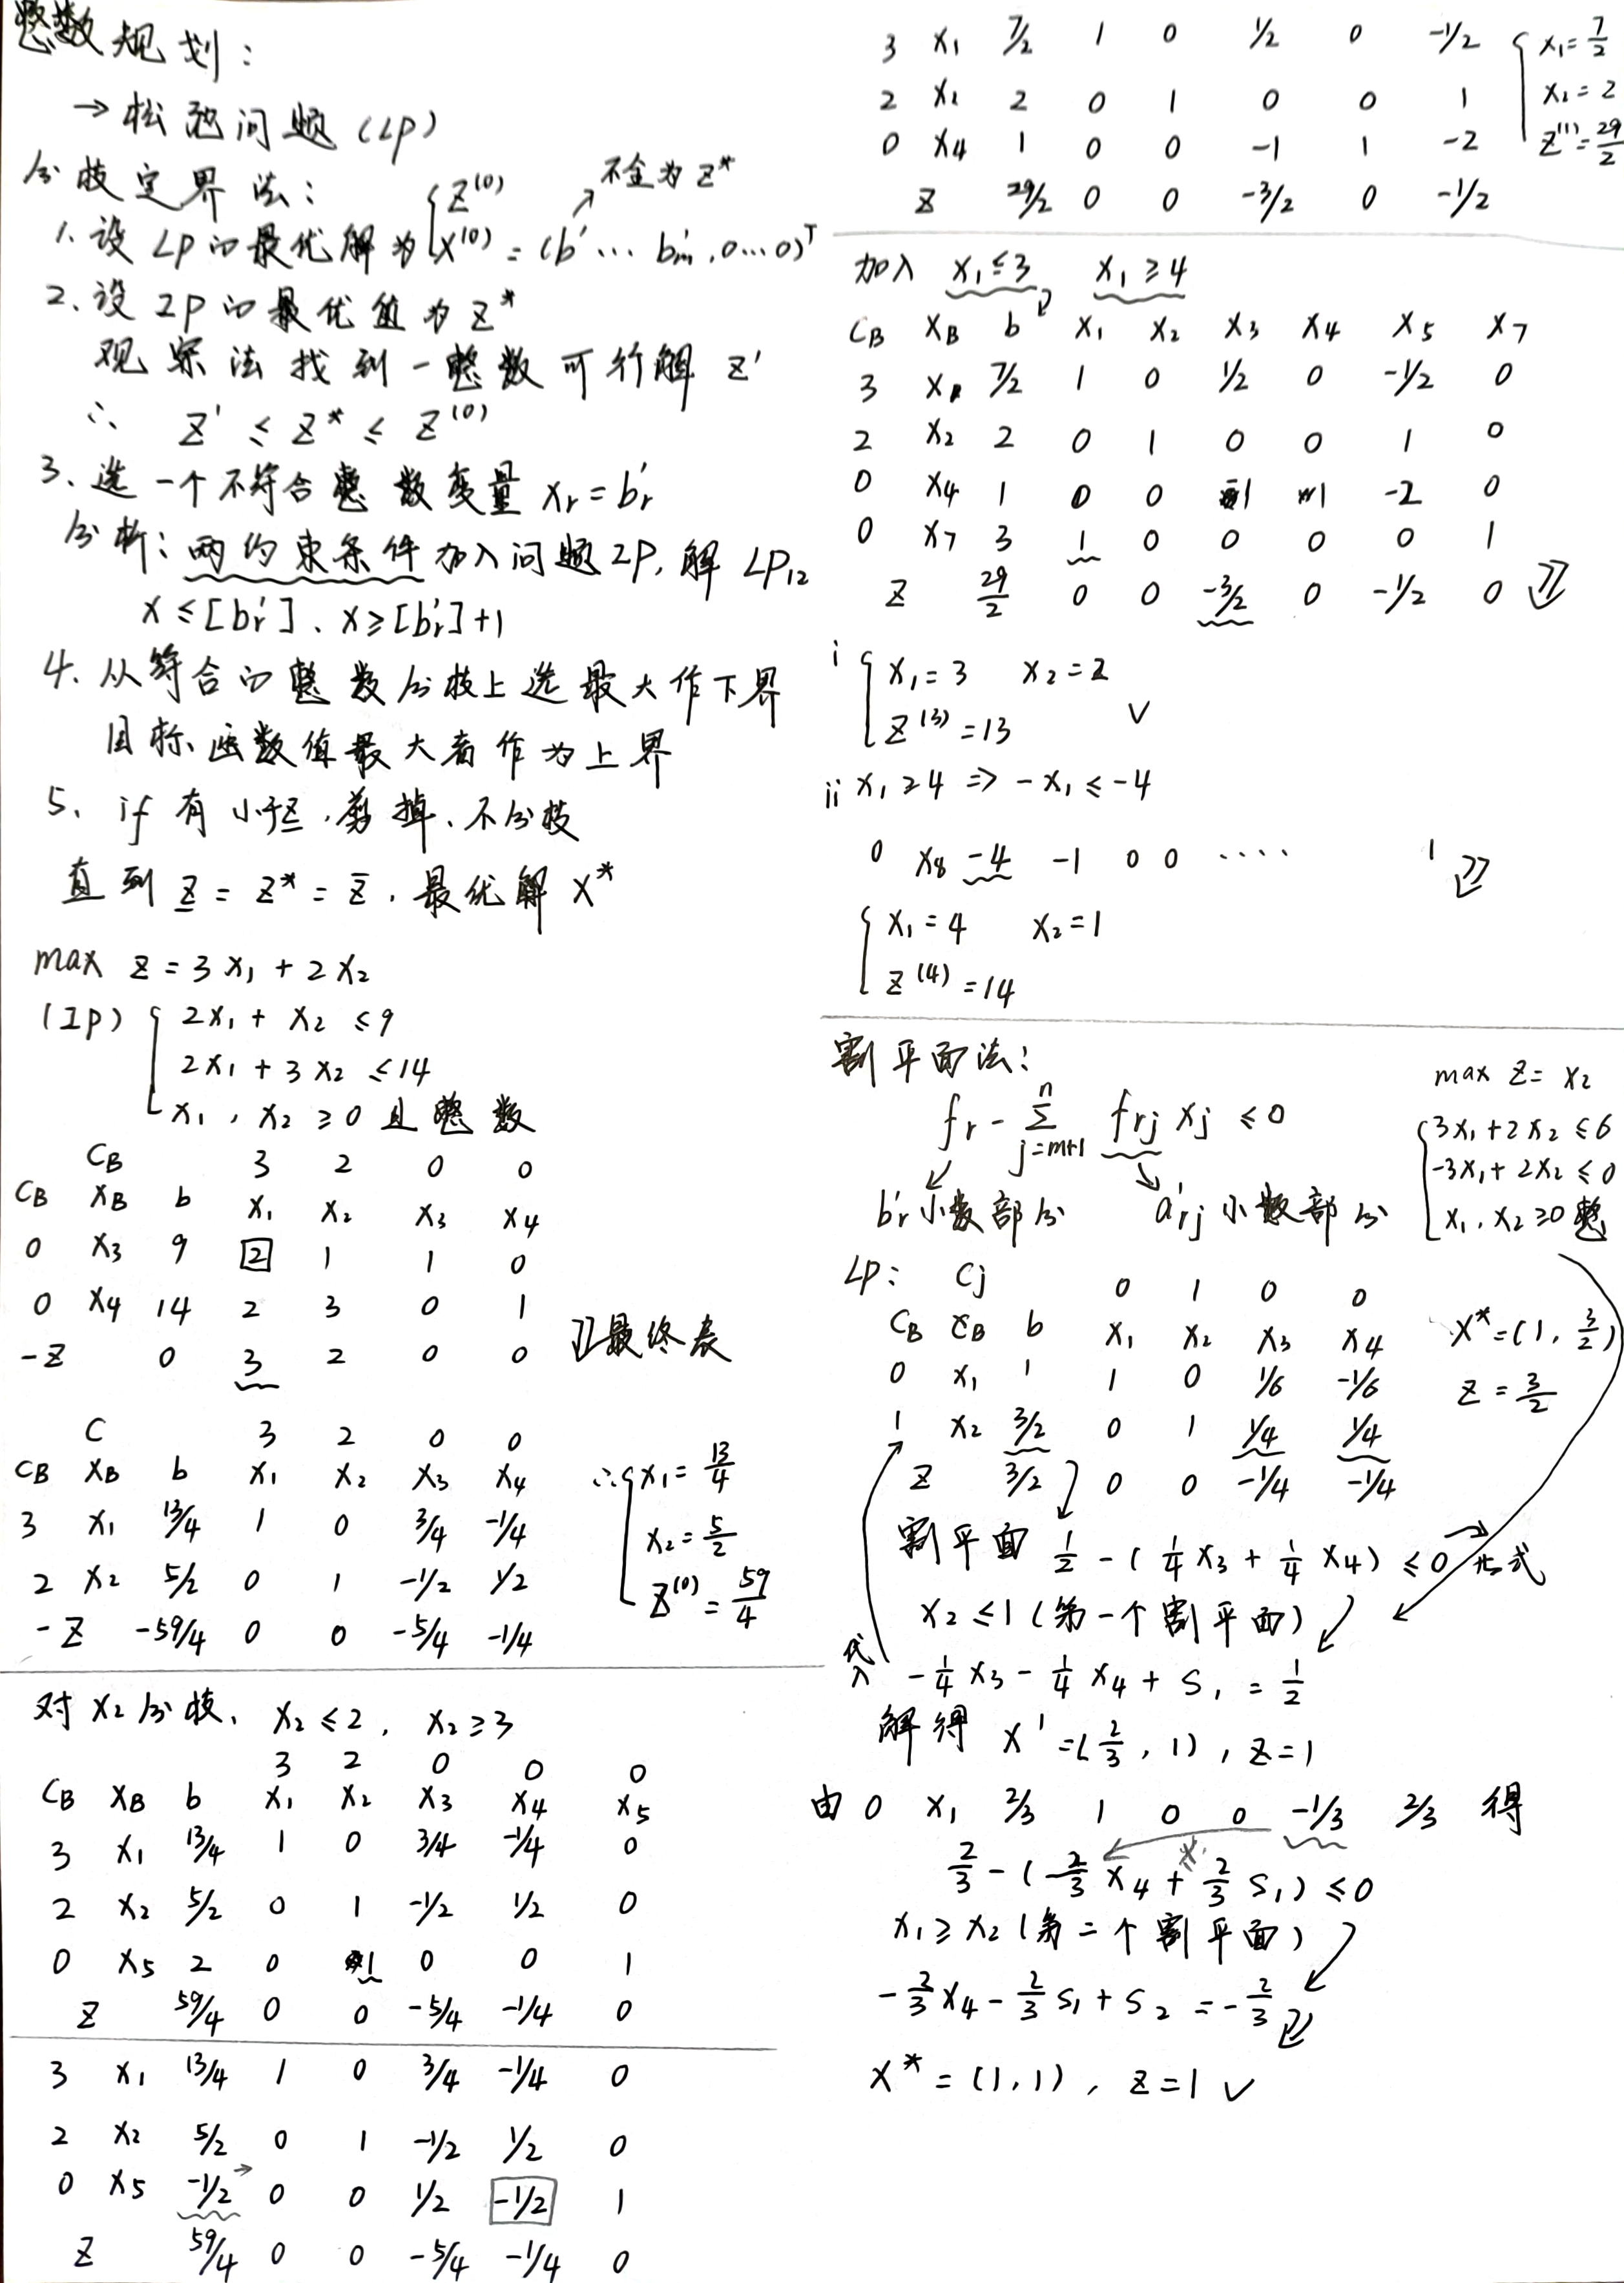 整数规划:
→松弛问题 (LP)
分枝定界法:
1. 设 LP的最优解为 { Z⁽⁰⁾ X⁽⁰⁾ = (b′ … b′m, 0…0)ᵀ ↗不全为 Z*
2. 设 IP的最优值为 Z*
观察法找到一整数可行解 Z′
∴ Z′ ≤ Z* ≤ Z⁽⁰⁾
3、选一个不符合整数变量 xr = b′r
分析: 两约束条件加入问题IP, 解 LP₁₂
x ≤ [b′r]、x ≥ [b′r]+1
4. 从符合的整数分枝上选最大作下界
目标函数值最大者作为上界
5、if 有小于Z̲, 剪掉、不分枝
直到 Z̲ = Z* = Z̄, 最优解 X*
max Z = 3x₁ + 2x₂
(IP) { 2x₁ + x₂ ≤ 9
2x₁ + 3x₂ ≤ 14
x₁, x₂ ≥ 0 且整数
CB 3 2 0 0
CB XB b x₁ x₂ x₃ x₄
0 x₃ 9 2 1 1 0
0 x₄ 14 2 3 0 1
-Z 0 3 2 0 0 ⇓最终表
C 3 2 0 0
CB XB b x₁ x₂ x₃ x₄
3 x₁ 13/4 1 0 3/4 -1/4
2 x₂ 5/2 0 1 -1/2 1/2
-Z -59/4 0 0 -5/4 -1/4
∴ { x₁ = 13/4
x₂ = 5/2
Z⁽⁰⁾ = 59/4
对 x₂ 分枝、x₂ ≤ 2, x₂ ≥ 3
3 2 0 0 0
CB XB b x₁ x₂ x₃ x₄ x₅
3 x₁ 13/4 1 0 3/4 -1/4 0
2 x₂ 5/2 0 1 -1/2 1/2 0
0 x₅ 2 0 1 0 0 1
Z 59/4 0 0 -5/4 -1/4 0
3 x₁ 13/4 1 0 3/4 -1/4 0
2 x₂ 5/2 0 1 -1/2 1/2 0
0 x₅ -1/2 → 0 0 1/2 -1/2 1
Z 59/4 0 0 -5/4 -1/4 0
3 x₁ 7/2 1 0 1/2 0 -1/2
2 x₂ 2 0 1 0 0 1
0 x₄ 1 0 0 -1 1 -2
Z 29/2 0 0 -3/2 0 -1/2
{ x₁ = 7/2
x₂ = 2
Z⁽¹⁾ = 29/2
加入 x₁ ≤ 3 x₁ ≥ 4
CB XB b x₁ x₂ x₃ x₄ x₅ x₇
3 x₁ 7/2 1 0 1/2 0 -1/2 0
2 x₂ 2 0 1 0 0 1 0
0 x₄ 1 0 0 -1 1 -2 0
0 x₇ 3 1 0 0 0 0 1
Z 29/2 0 0 -3/2 0 -1/2 0 ⇓
i { x₁ = 3 x₂ = 2
Z⁽³⁾ = 13 ✓
ii x₁ ≥ 4 ⇒ -x₁ ≤ -4
0 x₈ -4 -1 0 0 …. 1 ⇓
{ x₁ = 4 x₂ = 1
Z⁽⁴⁾ = 14
割平面法:
fr - Σ(j=m+1, n) frj xj ≤ 0
b′r 小数部分 a′rj 小数部分
max Z = x₂
{ 3x₁ + 2x₂ ≤ 6
-3x₁ + 2x₂ ≤ 0
x₁, x₂ ≥ 0 整
LP: Cj 0 1 0 0
CB XB b x₁ x₂ x₃ x₄
0 x₁ 1 1 0 1/6 -1/6
1 x₂ 3/2 0 1 1/4 1/4
Z 3/2 0 0 -1/4 -1/4
X* = (1, 3/2)
Z = 3/2
割平面 1/2 - (1/4 x₃ + 1/4 x₄) ≤ 0
x₂ ≤ 1 (第一个割平面)
代入 -1/4 x₃ - 1/4 x₄ + S₁ = 1/2
解得 X′ = (2/3, 1), Z = 1
由 0 x₁ 2/3 1 0 0 -1/3 2/3 得
2/3 - (2/3 x₄ + 2/3 S₁) ≤ 0
x₁ ≥ x₂ (第二个割平面)
-2/3 x₄ - 2/3 S₁ + S₂ = -2/3 ⇓
X* = (1, 1), Z = 1 ✓